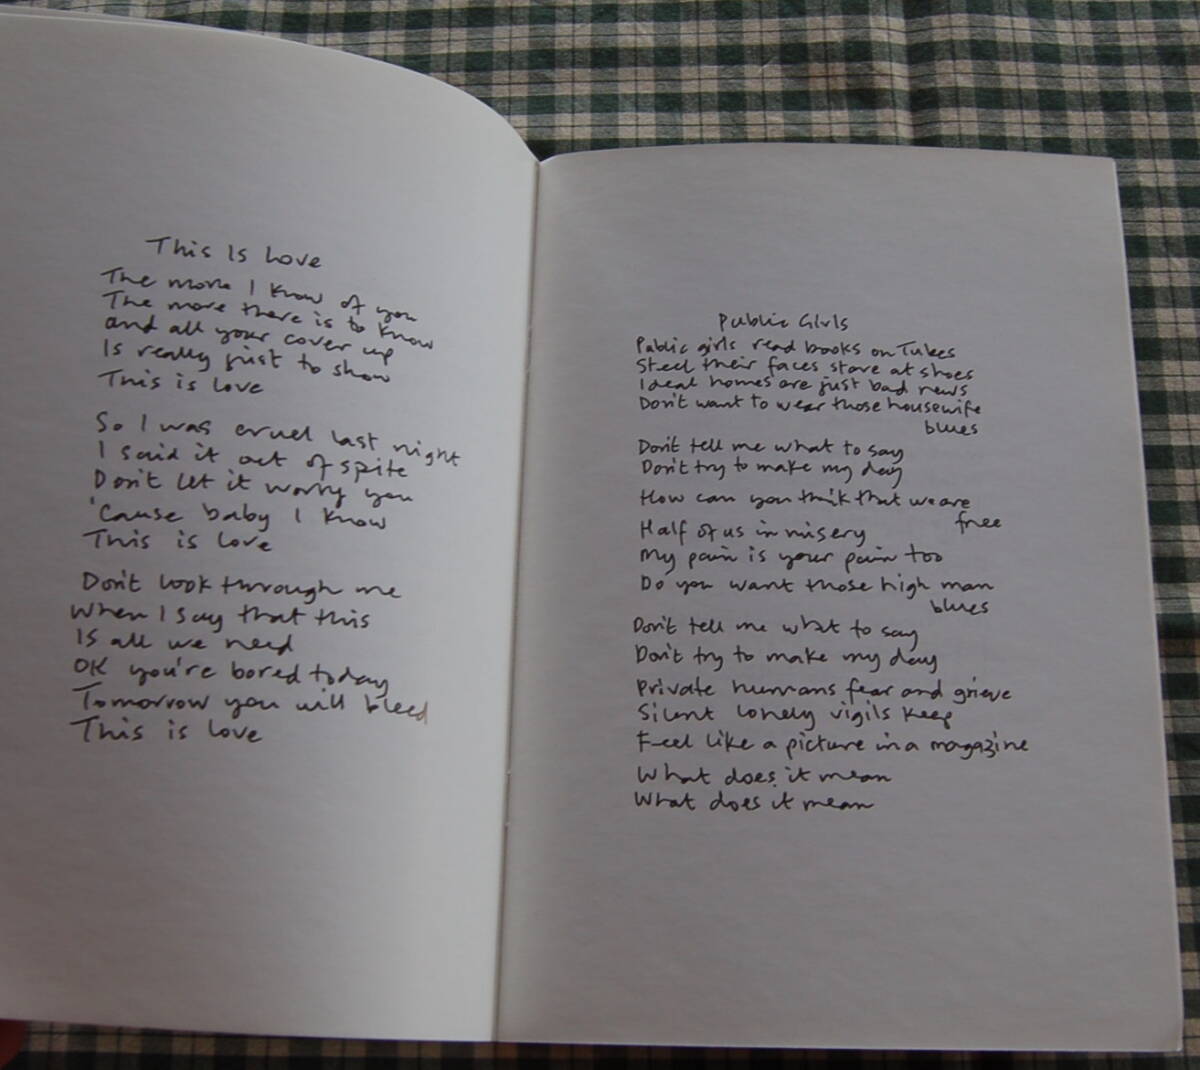 This Is Love
The more I know of you
The more there is to know
and all your cover up
Is really just to show
This is love
So I was cruel last night
I said it out of spite
Don't let it worry you
'Cause baby I know
This is love
Don't look through me
When I say that this
Is all we need
OK you're bored today
Tomorrow you will bleed
This is love
Public Girls
Public girls read books on Tubes
Steel their faces stare at shoes
Ideal homes are just bad news
Don't want to wear those housewife
blues
Don't tell me what to say
Don't try to make my day
How can you think that we are
free
Half of us in misery
My pain is your pain too
Do you want those high man
blues
Don't tell me what to say
Don't try to make my day
Private humans fear and grieve
Silent lonely vigils keep
Feel like a picture in a magazine
What does it mean
What does it mean